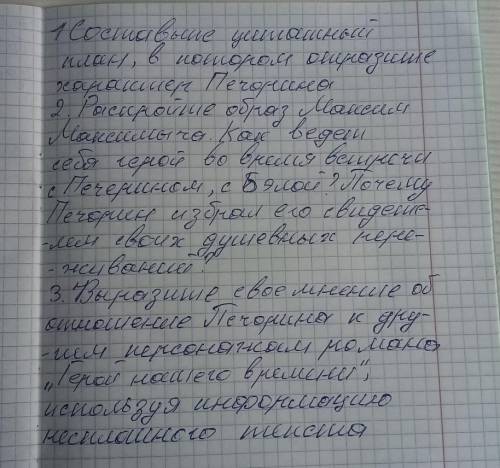 1 Составьте цитатный
план, в котором отразите
характер Печорина
2. Раскройте образ Максим
Максимыча. Как ведет
себя герой во время встречи
с Печерином, с Бэлой? Почему
Печорин избрал его свидете-
-лем своих душевных пере-
-живаний?
3. Выразите свое мнение об
отношение Печорина к дру-
-гим персонажам романа
„Герой нашего времени",
используя информацию
несплошного текста